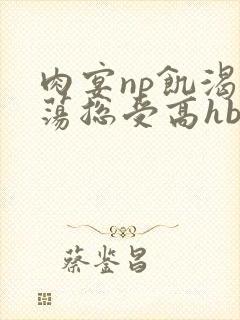 肉宴np飢渴
蕩总受高hb
蔡鉴昌